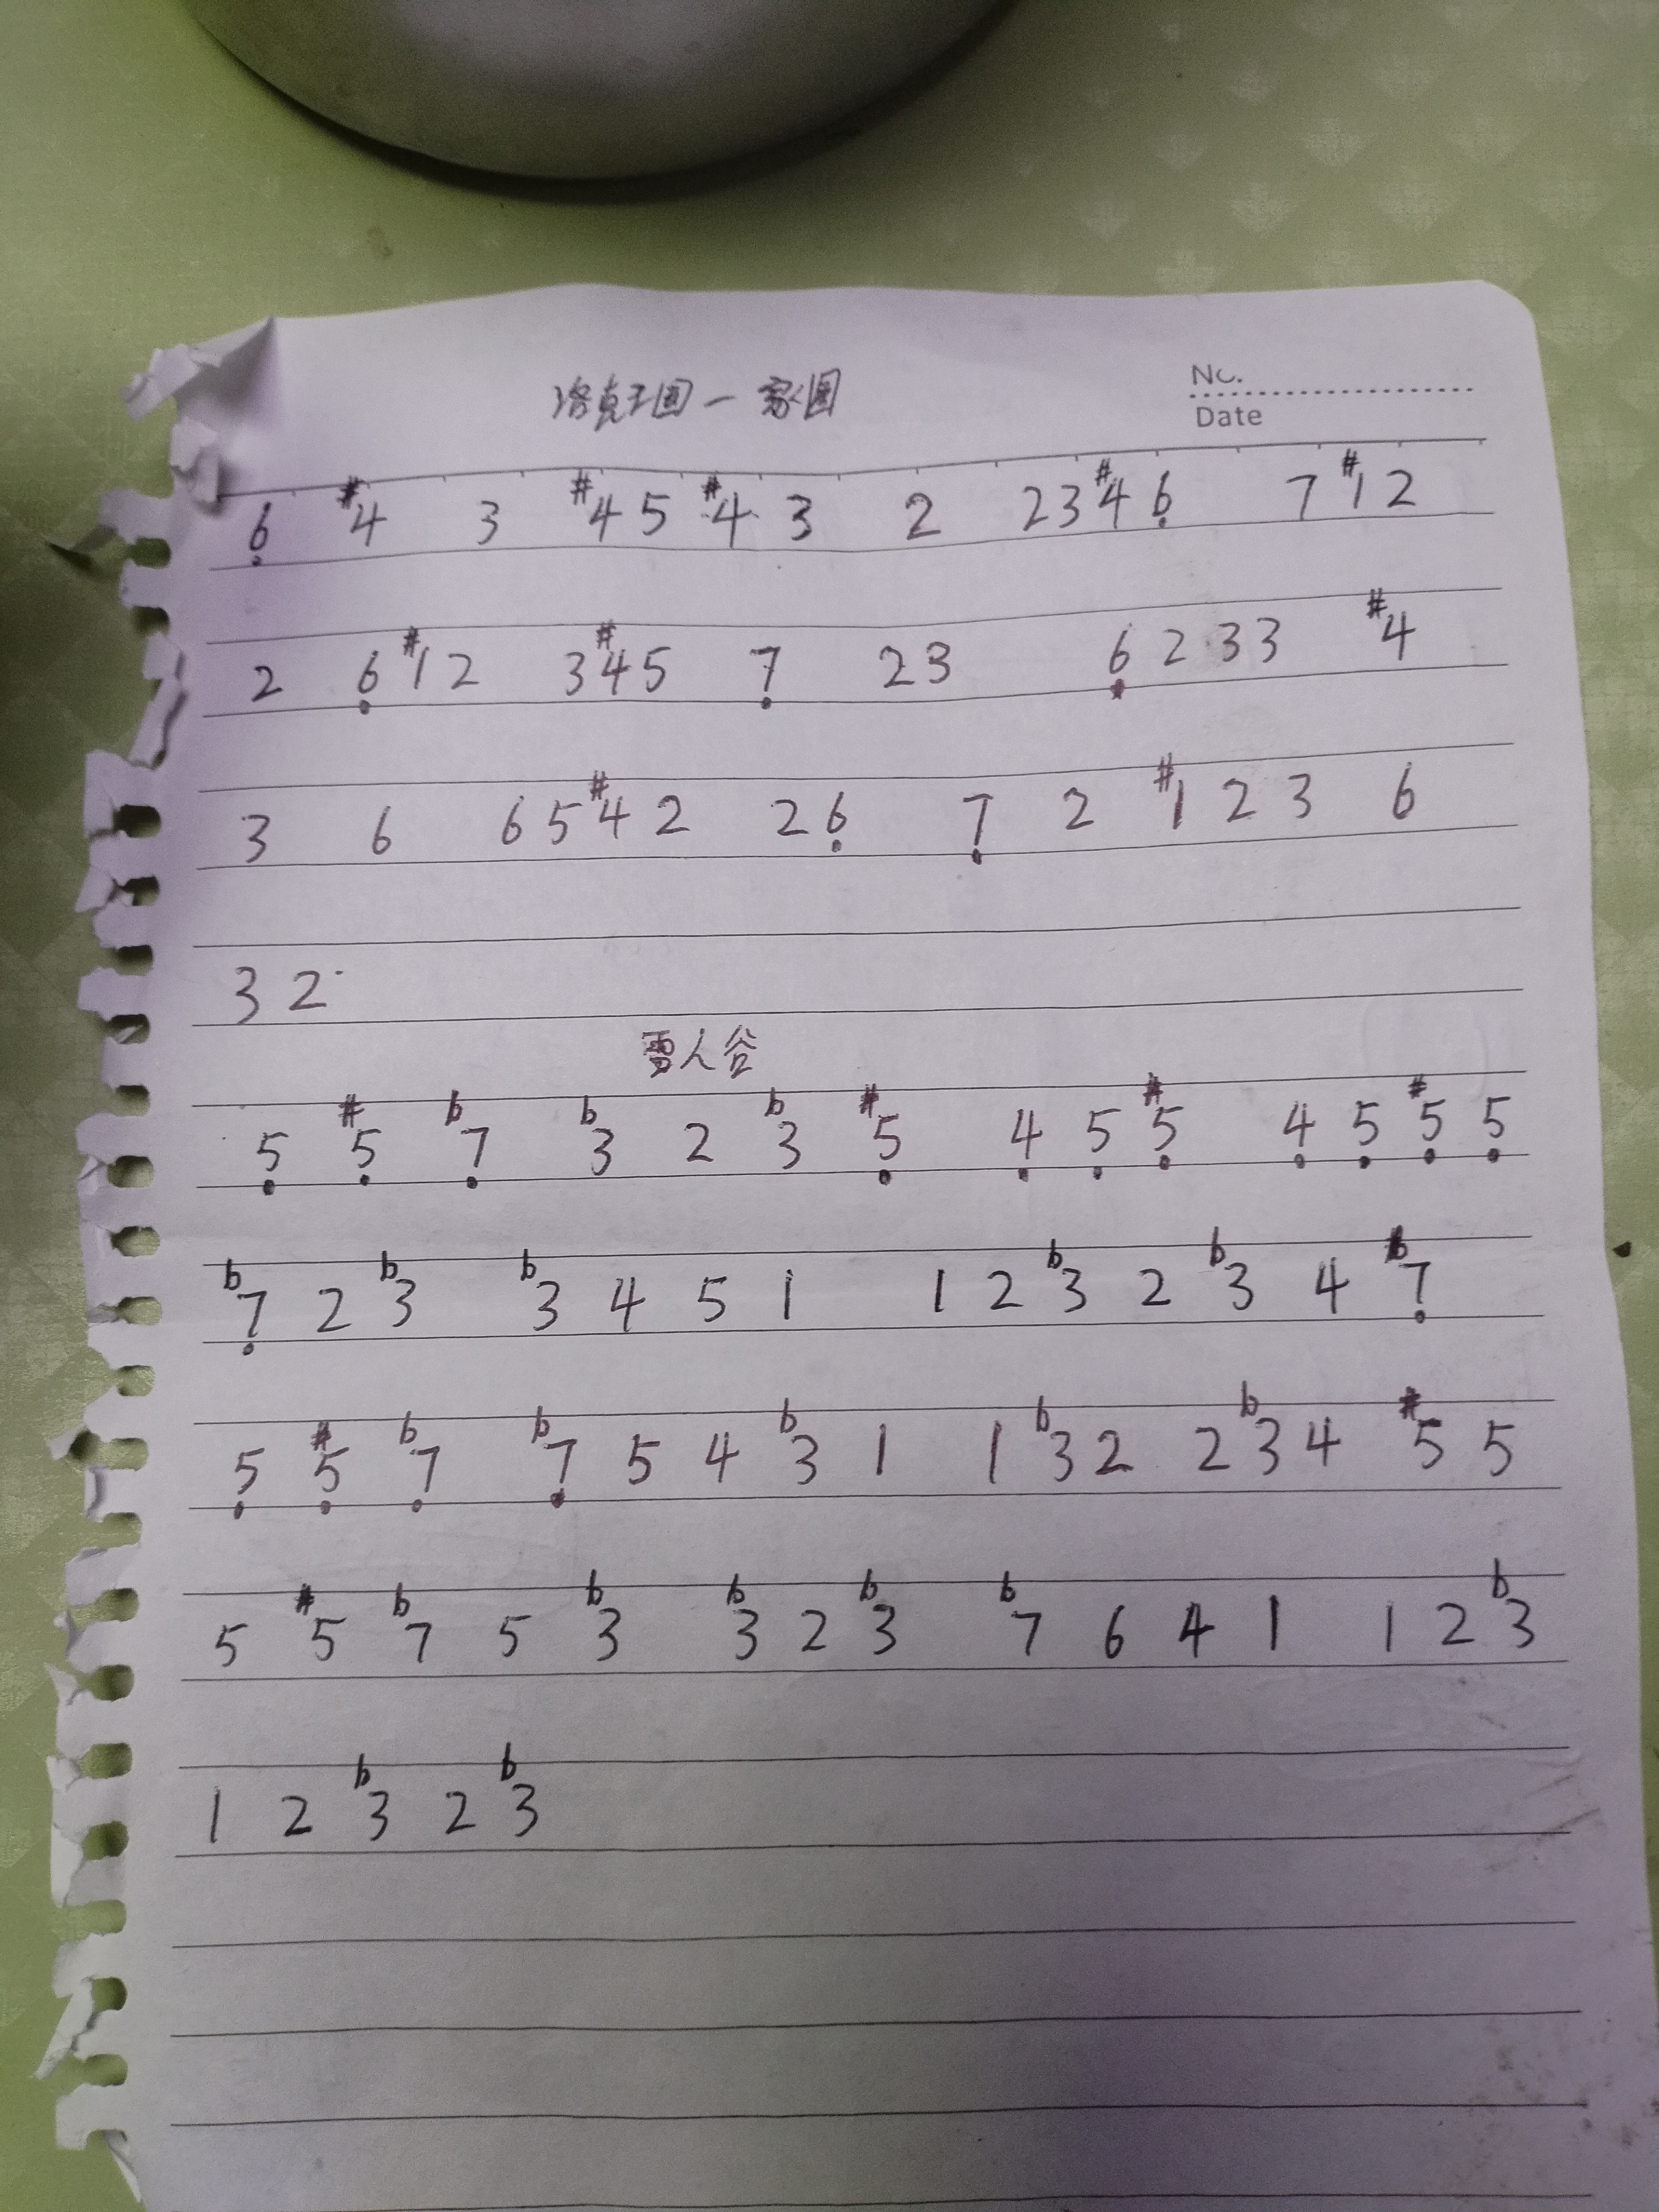 洛克王国一家园
No.
Date
6̣ #4 3 #4 5 #4 3 2 2 3 #4 6̣ 7 #1 2
2 6̣ #1 2 3 #4 5 7̣ 2 3 6̣ 2 3 3 #4
3 6 6 5 #4 2 2 6̣ 7̣ 2 #1 2 3 6
3 2
雪人谷
5̣ #5̣ b7̣ b3 2 b3 #5̣ 4̣ 5̣ #5̣ 4̣ 5̣ #5̣ 5̣
b7̣ 2 b3 b3 4 5 1 1 2 b3 2 b3 4 b7̣
5̣ #5̣ b7̣ b7̣ 5 4 b3 1 1 b3 2 2 b3 4 #5 5
5 #5 b7 5 b3 b3 2 b3 b7 6 4 1 1 2 b3
1 2 b3 2 b3